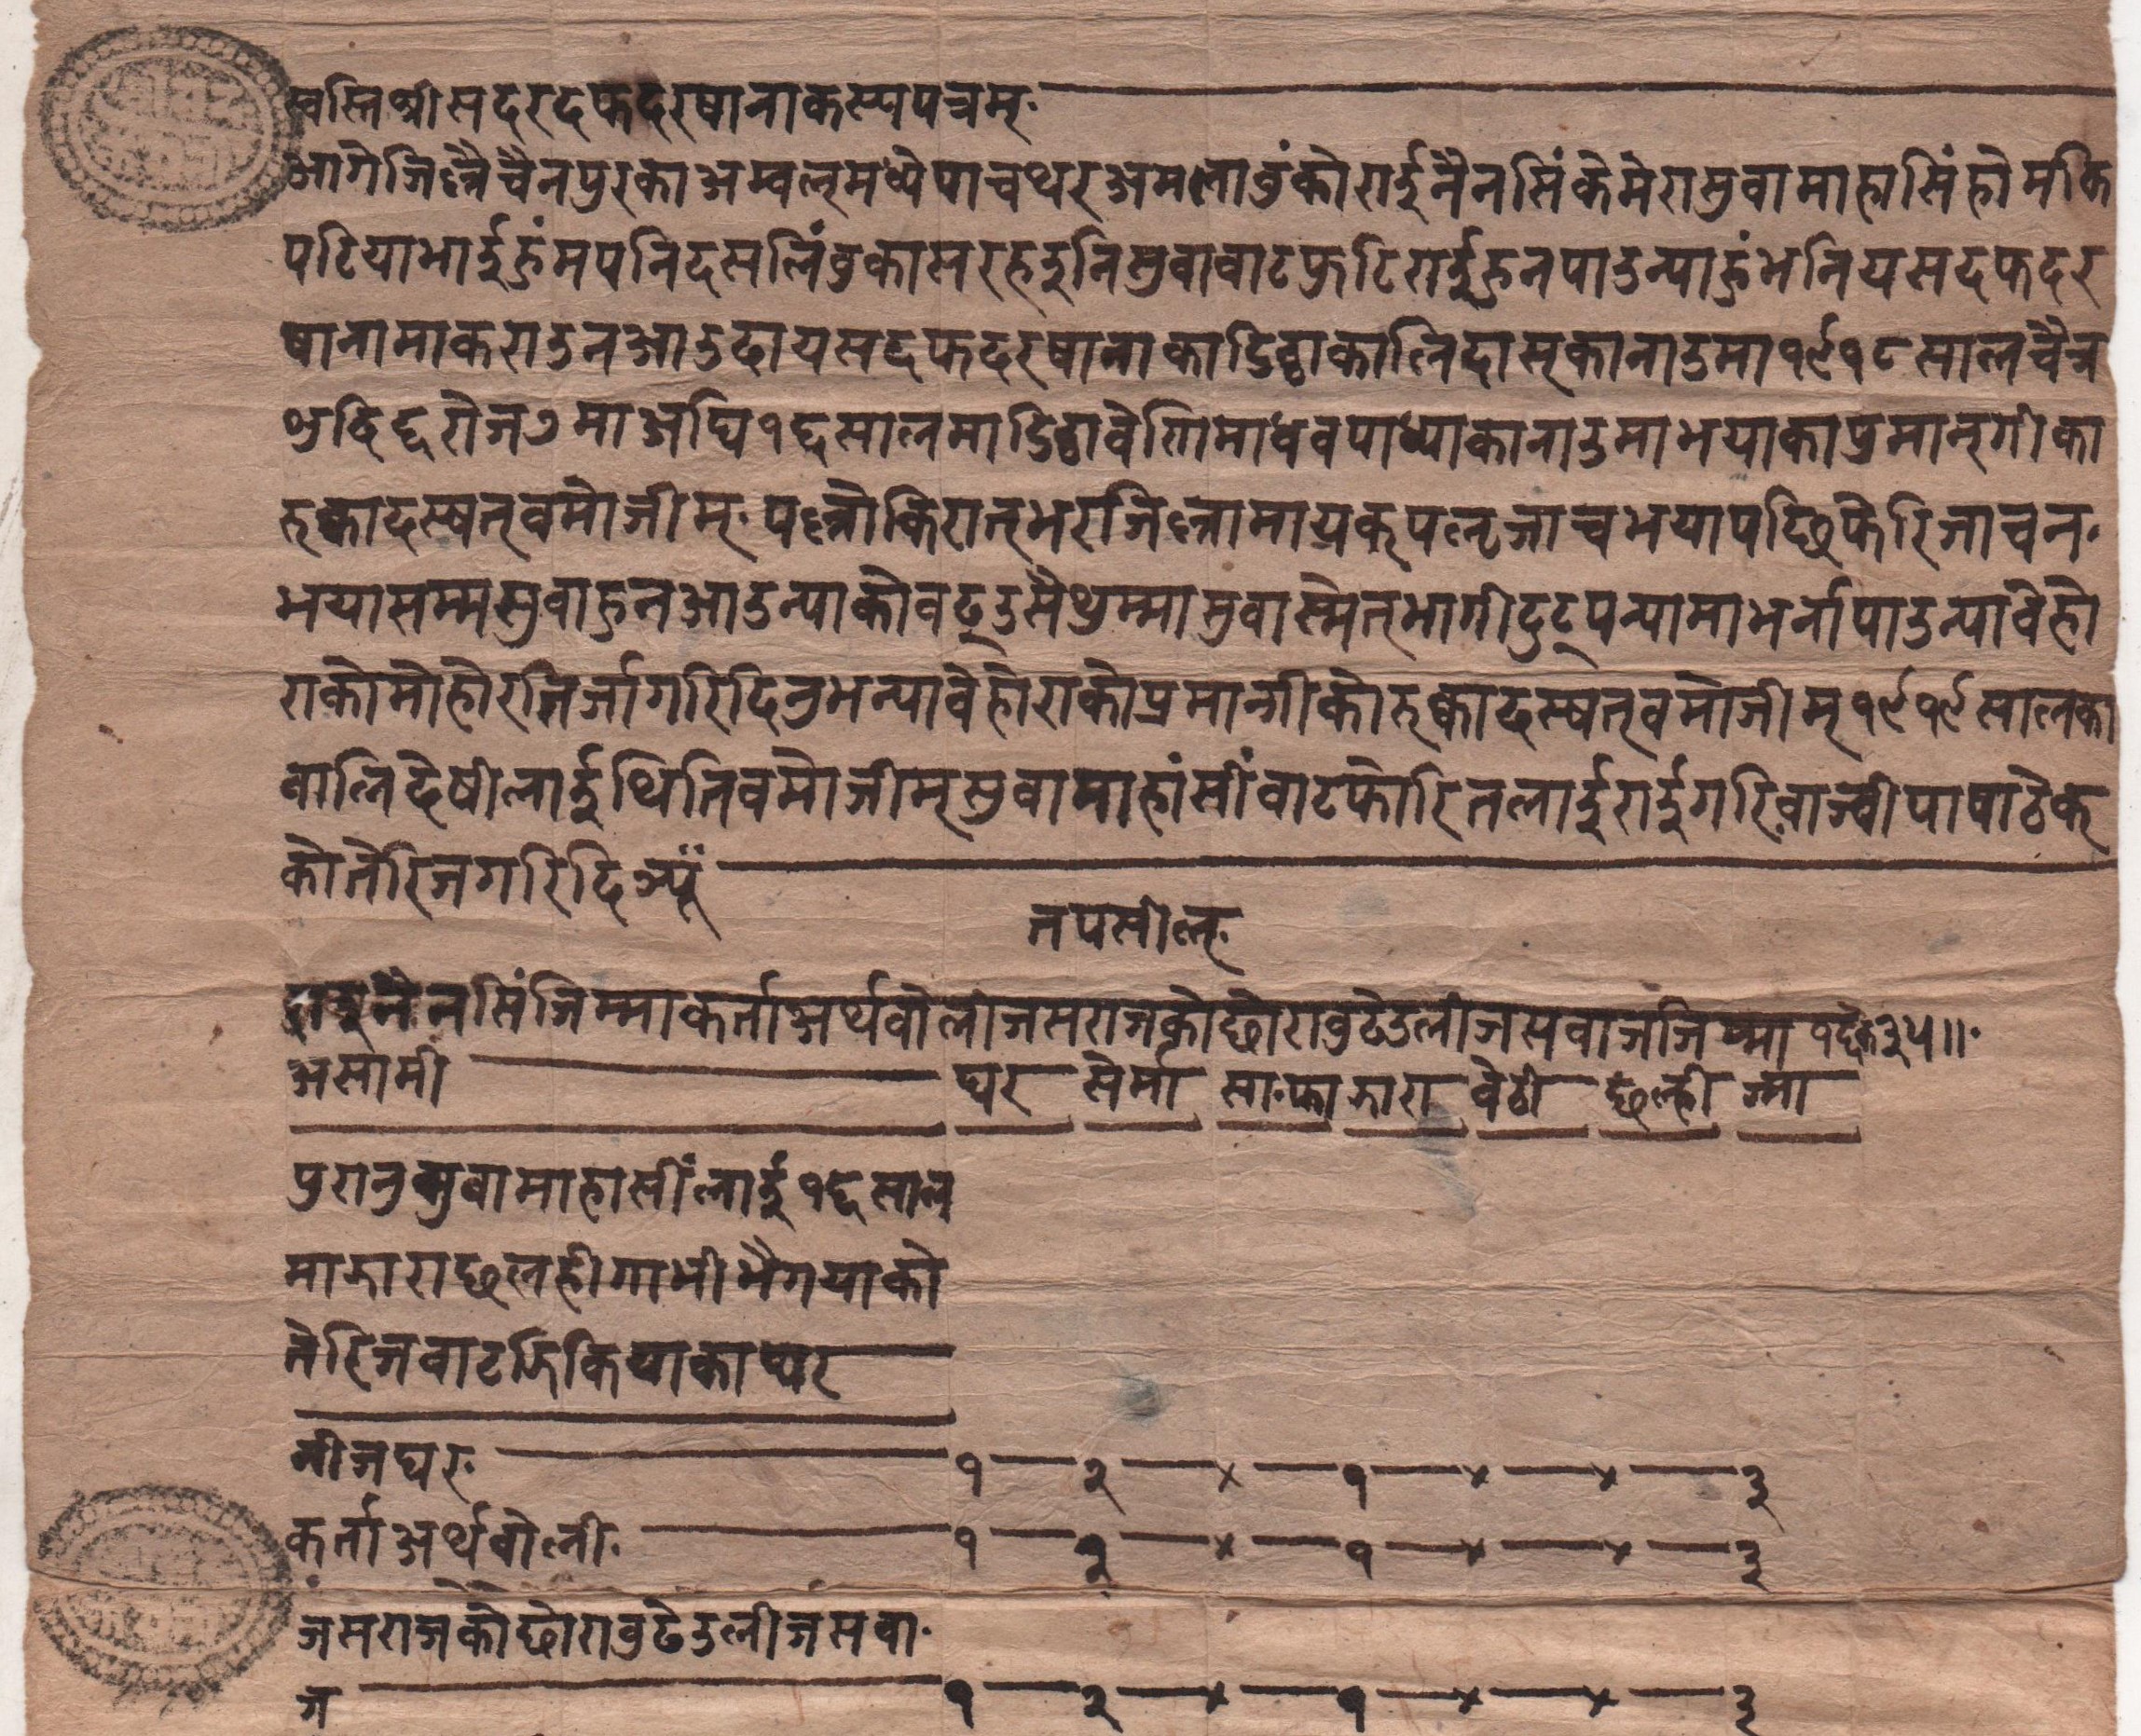 स्वस्ति श्री सदरदफदरषानाकस्य पत्रम्
आगे जिल्लै चैनपुरका अम्वल् मध्ये पाचथर अमलावुंको राई नैनसिंके मेरा सुवा माहासिं हो मकि
पटिया भाई हुं म पनि दसलिंवुका सरहदुनि सुवावाट फुटि राई हुन पाउन्या हुं भनि य सदफदर
षानामा कराउन आउदा य सद्दफदरषानाका डिठ्ठा कालिदास्का नाउमा १९१८ साल चैत्र
शुदि ६ रोज ७ मा अघि १६ सालमा डिठ्ठा वेणिमाधव पाध्याका नाउमा भयाका प्रमान्गीका
हक्वा दस्षत् वमोजीम् पल्लो किरात् भर जिल्लामा यक् पल्ट जाच भया पछि फेरि जाच न
भयासम्म सुवा हुन आउन्याको वढ्उसै थुम्मा सुवा स्मेत् भागी टुट् पन्यामा भर्ना पाउन्या वेहो
राको मोहोर निर्जा गरिदिनु भन्या वेहोराको प्रमान्गीको हक्वा दस्षत् वमोजीम् १९१९ सालका
वालि देषी लाई थिति वमोजीम् सुवा माहांसीं वाट फोरि तलाई राई गरि वाज्वी पाषा ठेक्
को तेरिज गरिदिञ्यूं
तपसील्
राई नैनसिं जिम्मा कर्ता अर्थवोली जसराजको छोरा वुढेउली जसवाज जिम्मा १६ के ३५॥
असामी घर सेर्मा सा.फा झारा वेठी छल्ही ग्मा
पुरानु सुवा माहासीं लाई १६ साल
मा झारा छलही गाभी भैगयाको
तेरिज वाट झिकियाका घर
नीज घर १ २ × १ × × ३
कर्ता अर्थवोली १ २ × १ × × ३
जंसराजको छोरा वुढेउली जसवा
ज १ २ × १ × × ३